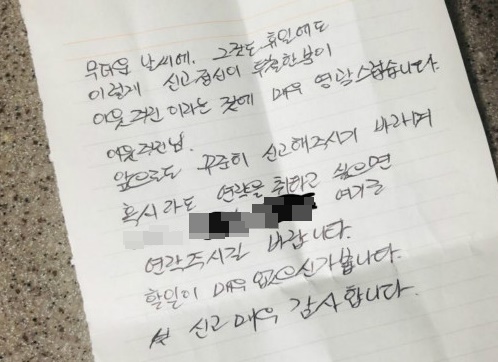 무더운 날씨에. 그것도 휴일에도
이렇게 신고정신이 투철한분이
이웃주민 이라는 것에 매우 영광스럽습니다.
이웃주민님.
앞으로도 꾸준히 신고해주시기 바라며
혹시라도 연락을 취하고 싶으면
여기로
연락주시길 바랍니다.
할일이 매우 없으신가 봅니다.
신고 매우 감사합니다.